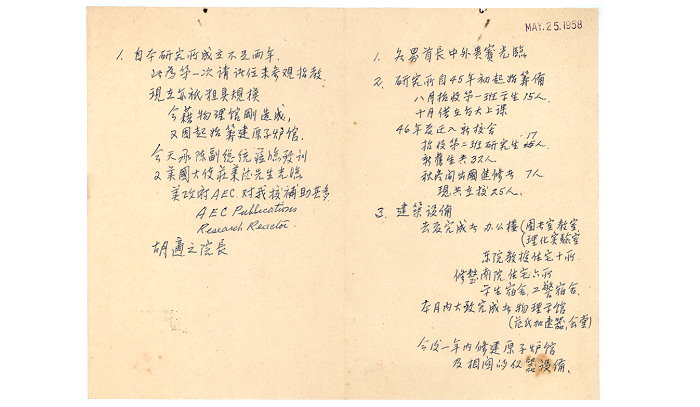 MAY. 25. 1958
1. 自本研究所成立不足兩年.
此为第一次请诸位来参观指教.
現立尔祇粗具規模
今藉物理馆剛造成,
又因起始筹建原子炉馆.
今天承陈副总统莅臨致训
又美國大使莊莱德先生光臨
美政府AEC. 对我校補助甚多
AEC Publications
Research Reactor.
胡適之院長
1. 各界首長中外貴賓光臨
2. 研究所自45年初起始筹備
八月招收第一班学生15人.
十月借立台大上课
46年夏迁入新校舍
招收第二班研究生 17人.
新舊生共32人
秋后间出國進修共 7人
現共立校25人.
3. 建築設備
去夏完成者 办公樓(圖书室教室
(理化实験室
东院教授住宅十所.
修整南院住宅六所
学生宿舍,工警宿舍.
本月内大致完成者物理学館
(范氏加速器,会堂)
今后一年内修建原子炉馆
及相関的仪器設備.